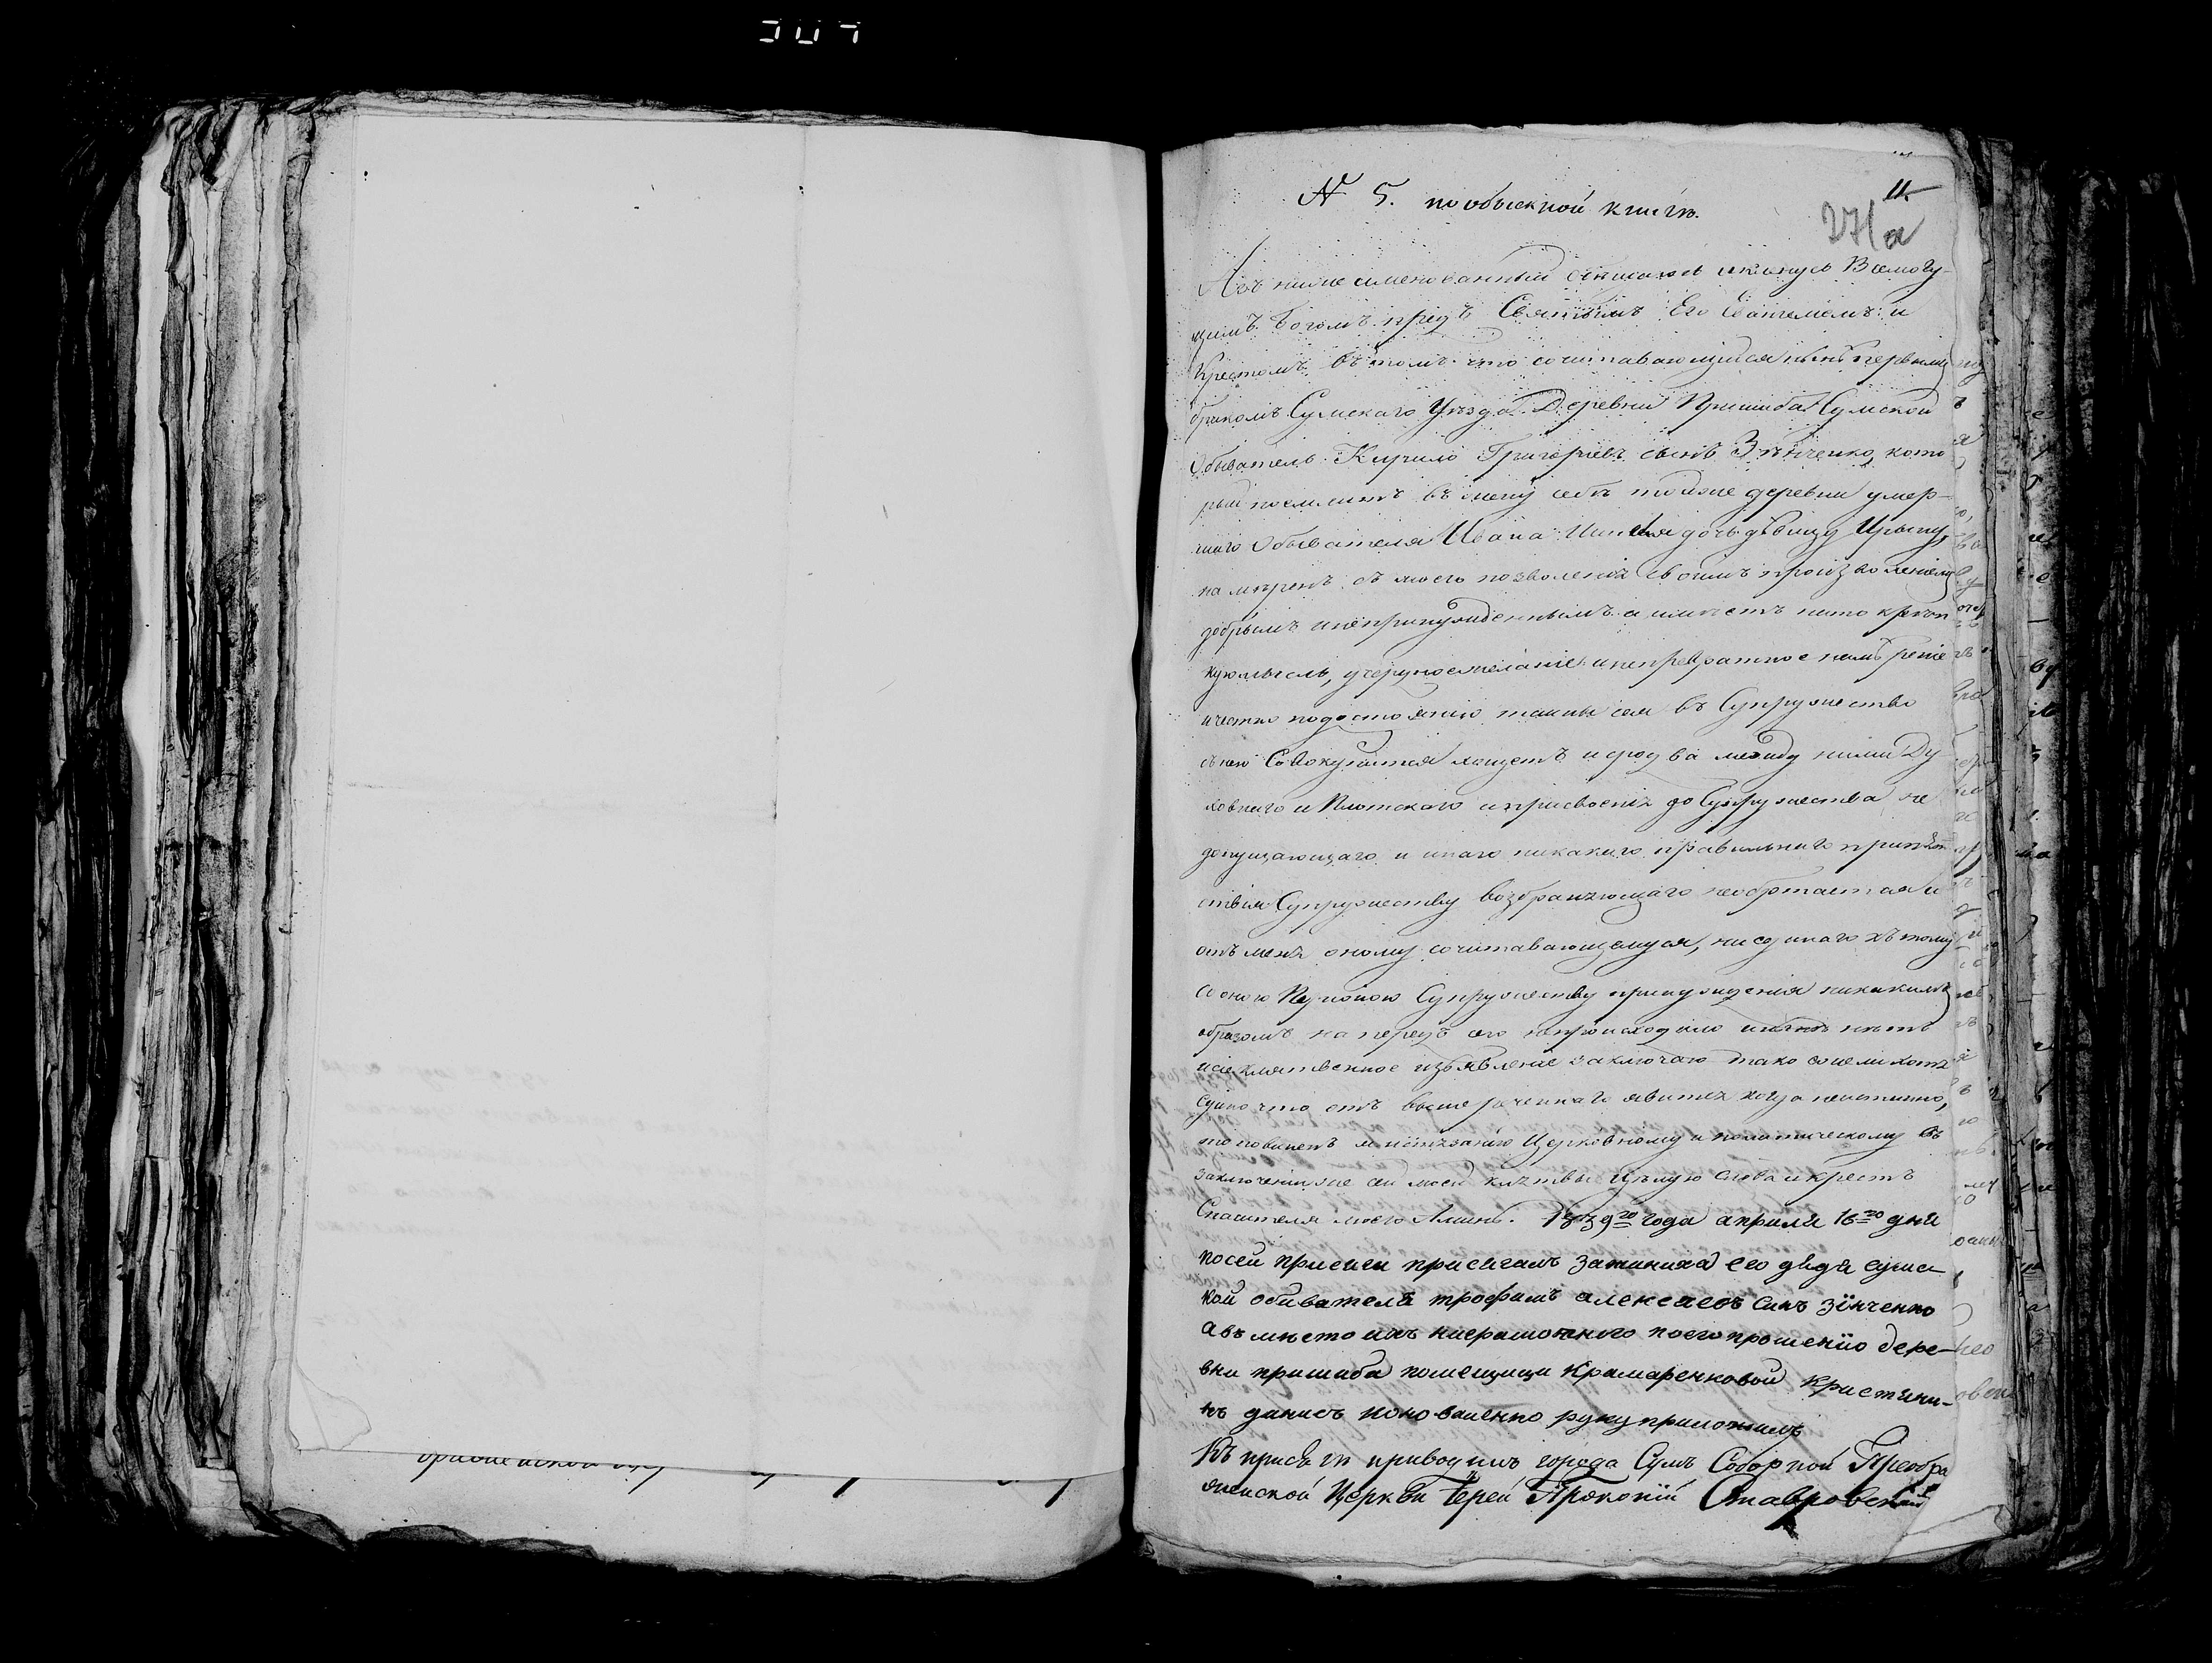 11.
№ 5. по обыскной книгѣ.
271а
Азъ нижеименованный обѣщаюсь и клянусь Всемогу-
щимъ Богомъ предъ Святымъ Его Евангелиемъ и
Крестомъ въ томъ что сочитавающийся нынѣ первымъ
бракомъ Сумскаго Уѣзда Деревни Пришиба Сумской
Обыватель Кирило Григорiевъ сынъ Зѣнченко, кото
рый поемлитъ въ жену себѣ тойже деревни умер-
шаго Обывателя Ивана дочь дѣвицу Ирину,
намѣренъ съ моего позволенiя своимъ произволениемъ
добрымъ и непринужденнымъ а имѣетъ нато крѣп
кую мысль, и непревратное намѣренiе
и честно по достоянию тайны сея въ Супружество
съ нею Совокупится хощетъ и сродства между ними Ду
ховнаго и Плотскаго и присвоенiя до Супружества не
допущающаго и инаго никакого правильнаго препят
ствия Супружеству возбраняющаго необрѣтается и
отъ меня оному сочитавающемуся, ни единаго къ тому
со оною Супружеству принуждения никакимъ
образомъ на передъ сего непроисходило и нынѣ нѣтъ
и сие клятвенное изъявленiе заключаю тако ежели хотя
едино что отъ вышереченнаго явится когда неистинно,
то повиненъ истязанию Церковному и политическому въ
заключенiи же сей моей клятвы цѣлую слова и крестъ
Спасителя моего Аминь. 1839го года априля 16го дня
посей присяги присягалъ зажениха его дядя сумс
кой обиватель трофимъ алексаевъ синъ зѣнченко
авъмѣсто ихъ ниграмотного поего прошенiю дере-
вни пришиба помещици Крамаренковой кристяни-
нъ рукуприложилъ
Къ присягѣ приводилъ города Сумъ Соборной Преобра
женской Церкви Iерей Прокопiй Ставровскiй